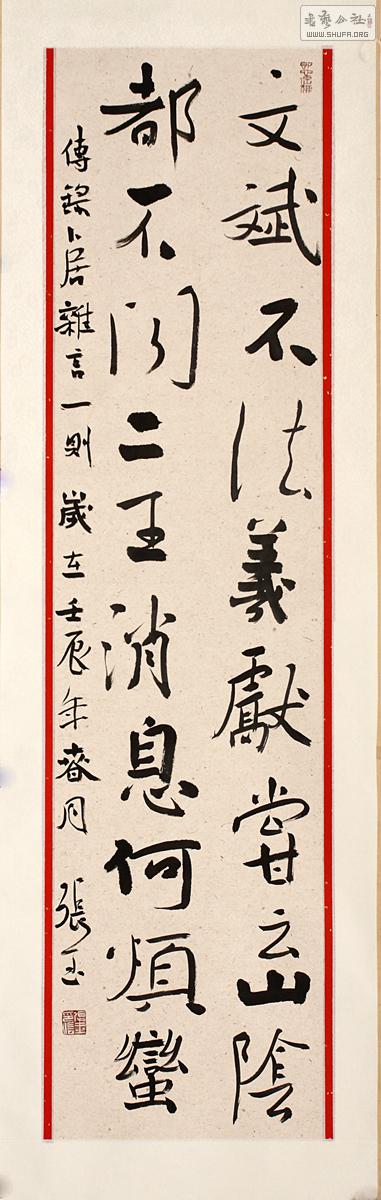 書藝公社
WWW.SHUFA.ORG
文斌不法羲獻甞云山陰
都不二王消息何煩蠻
傳錄卜居雜言一则 歲在壬辰年春月 張玉